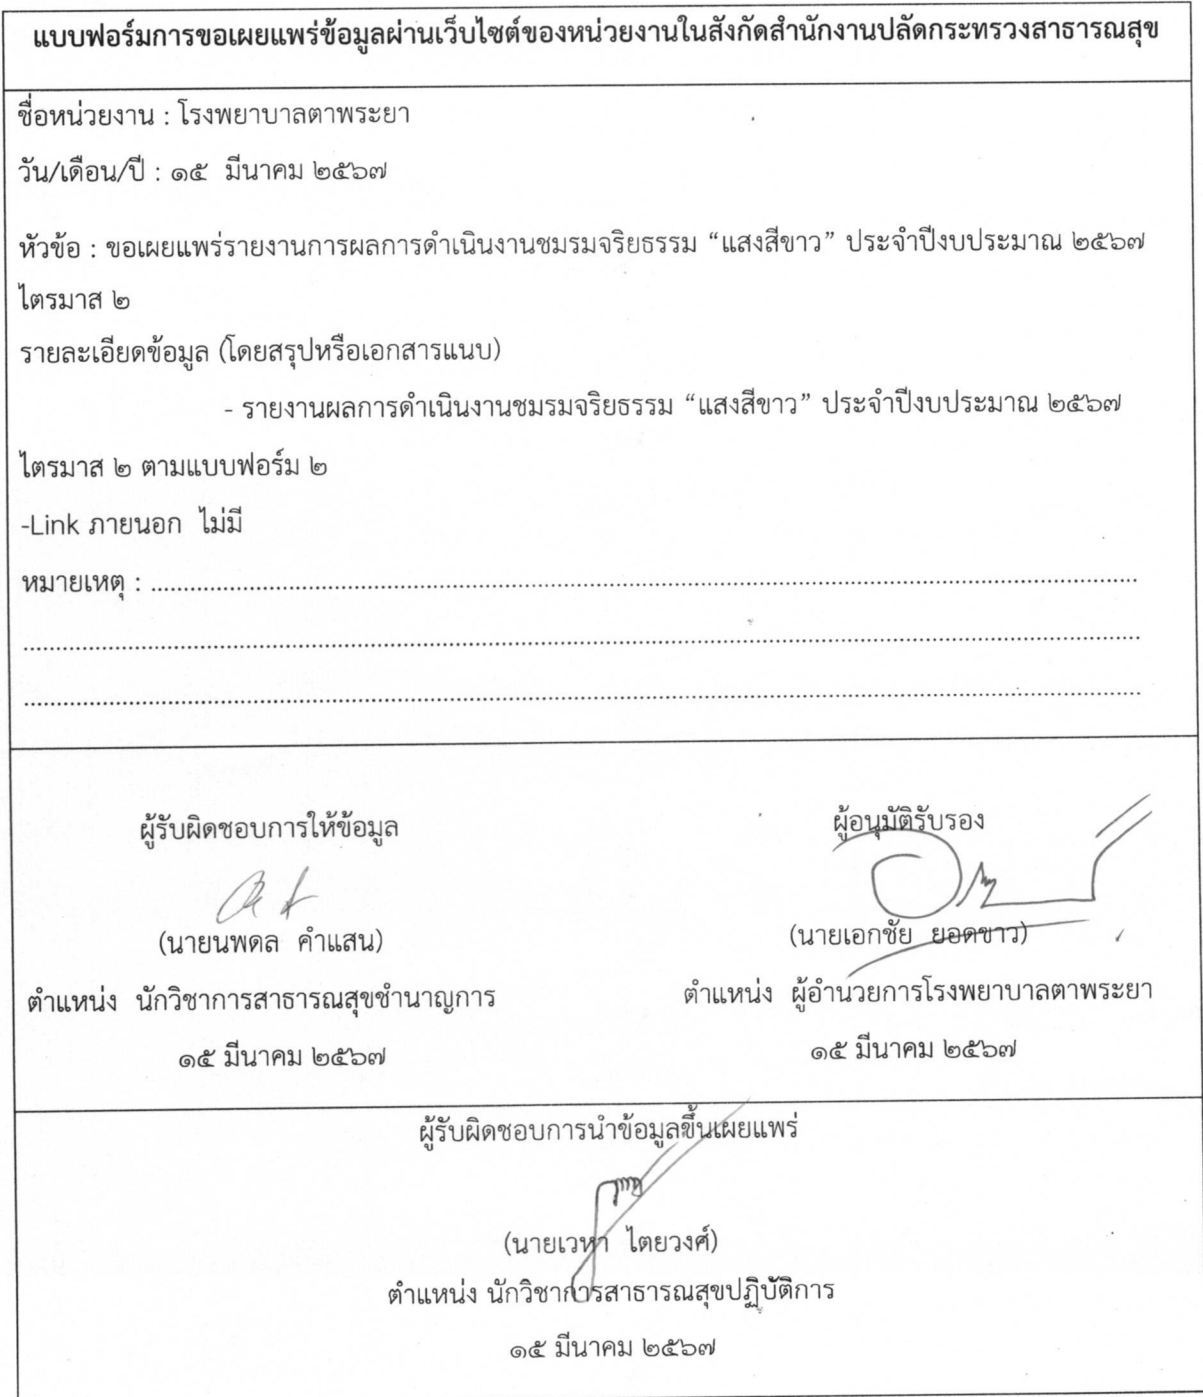 แบบฟอร์มการขอเผยแพร่ข้อมูลผ่านเว็บไซต์ของหน่วยงานในสังกัดสำนักงานปลัดกระทรวงสาธารณสุข
ชื่อหน่วยงาน : โรงพยาบาลตาพระยา
วัน/เดือน/ปี : ๑๕ มีนาคม ๒๕๖๗
หัวข้อ : ขอเผยแพร่รายงานการผลการดำเนินงานชมรมจริยธรรม “แสงสีขาว” ประจำปีงบประมาณ ๒๕๖๗
ไตรมาส ๒
รายละเอียดข้อมูล (โดยสรุปหรือเอกสารแนบ)
- รายงานผลการดำเนินงานชมรมจริยธรรม “แสงสีขาว” ประจำปีงบประมาณ ๒๕๖๗
ไตรมาส ๒ ตามแบบฟอร์ม ๒
-Link ภายนอก ไม่มี
หมายเหตุ : ..........................................................................
..........................................................................
..........................................................................
ผู้รับผิดชอบการให้ข้อมูล
(นายนพดล คำแสน)
ตำแหน่ง นักวิชาการสาธารณสุขชำนาญการ
๑๕ มีนาคม ๒๕๖๗
ผู้อนุมัติรับรอง
(นายเอกชัย ยอดขาว)
ตำแหน่ง ผู้อำนวยการโรงพยาบาลตาพระยา
๑๕ มีนาคม ๒๕๖๗
ผู้รับผิดชอบการนำข้อมูลขึ้นเผยแพร่
(นายเวหา ไตยวงศ์)
ตำแหน่ง นักวิชาการสาธารณสุขปฏิบัติการ
๑๕ มีนาคม ๒๕๖๗